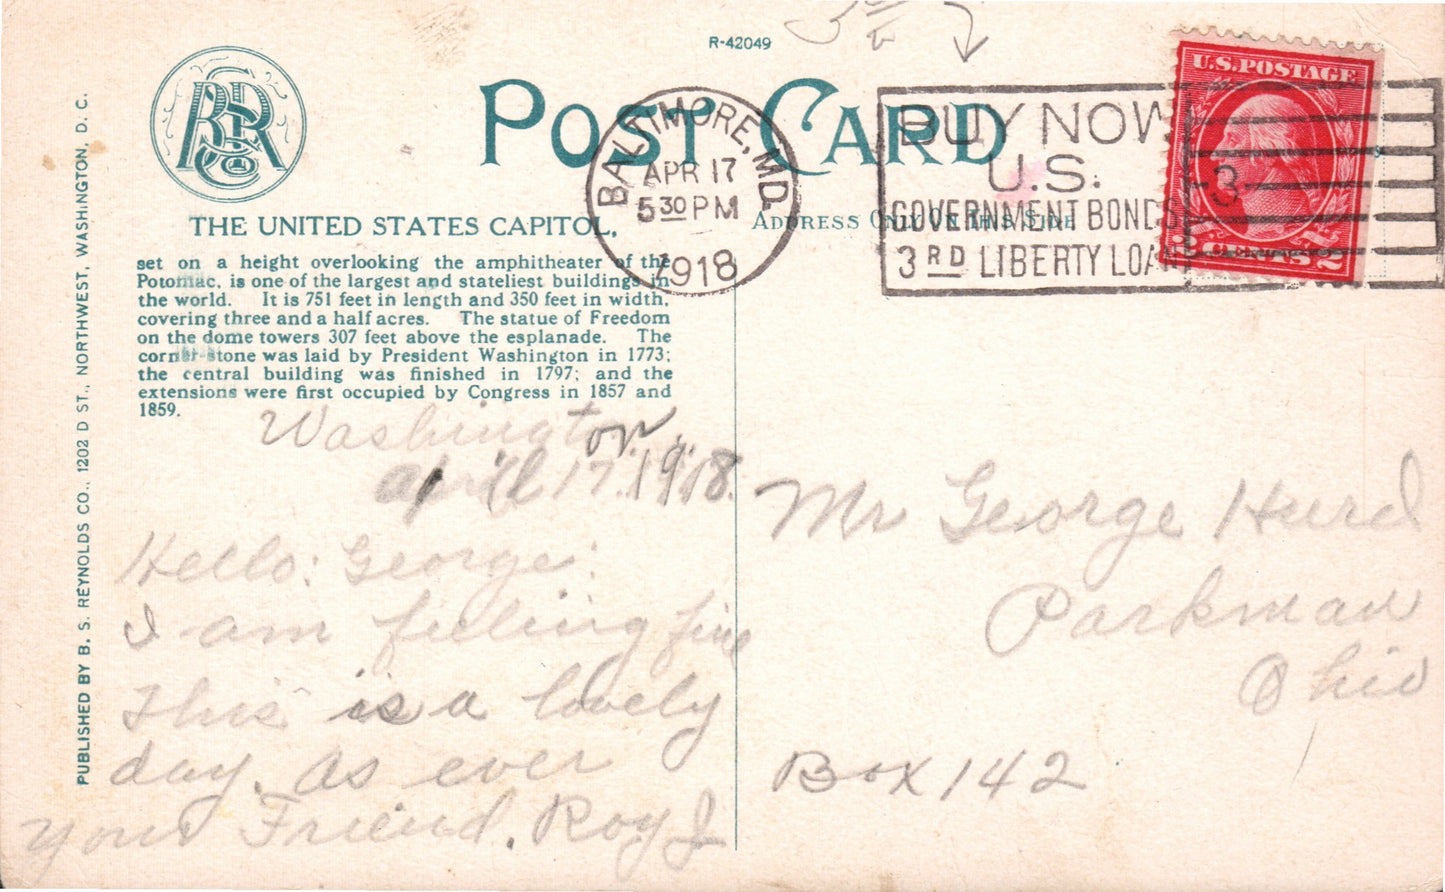 R-42049
POST CARD
BRSR Co
BALTIMORE, MD.
APR 17
5 30 PM
1918
BUY NOW
U.S.
GOVERNMENT BONDS
3RD LIBERTY LOAN
3
U.S. POSTAGE
2 CENTS 2
ADDRESS ONLY ON THIS SIDE
THE UNITED STATES CAPITOL,
set on a height overlooking the amphitheater of the
Potomac, is one of the largest and stateliest buildings in
the world. It is 751 feet in length and 350 feet in width,
covering three and a half acres. The statue of Freedom
on the dome towers 307 feet above the esplanade. The
corner-stone was laid by President Washington in 1773;
the central building was finished in 1797; and the
extensions were first occupied by Congress in 1857 and
1859.
PUBLISHED BY B. S. REYNOLDS CO., 1202 D ST., NORTHWEST, WASHINGTON, D. C.
Washington
April 17. 1918.
Hello: George:
I am feeling fine
This is a lovely
day. As ever
your Friend. Roy J
Mr George Hurd
Parkman
Ohio
Box 142